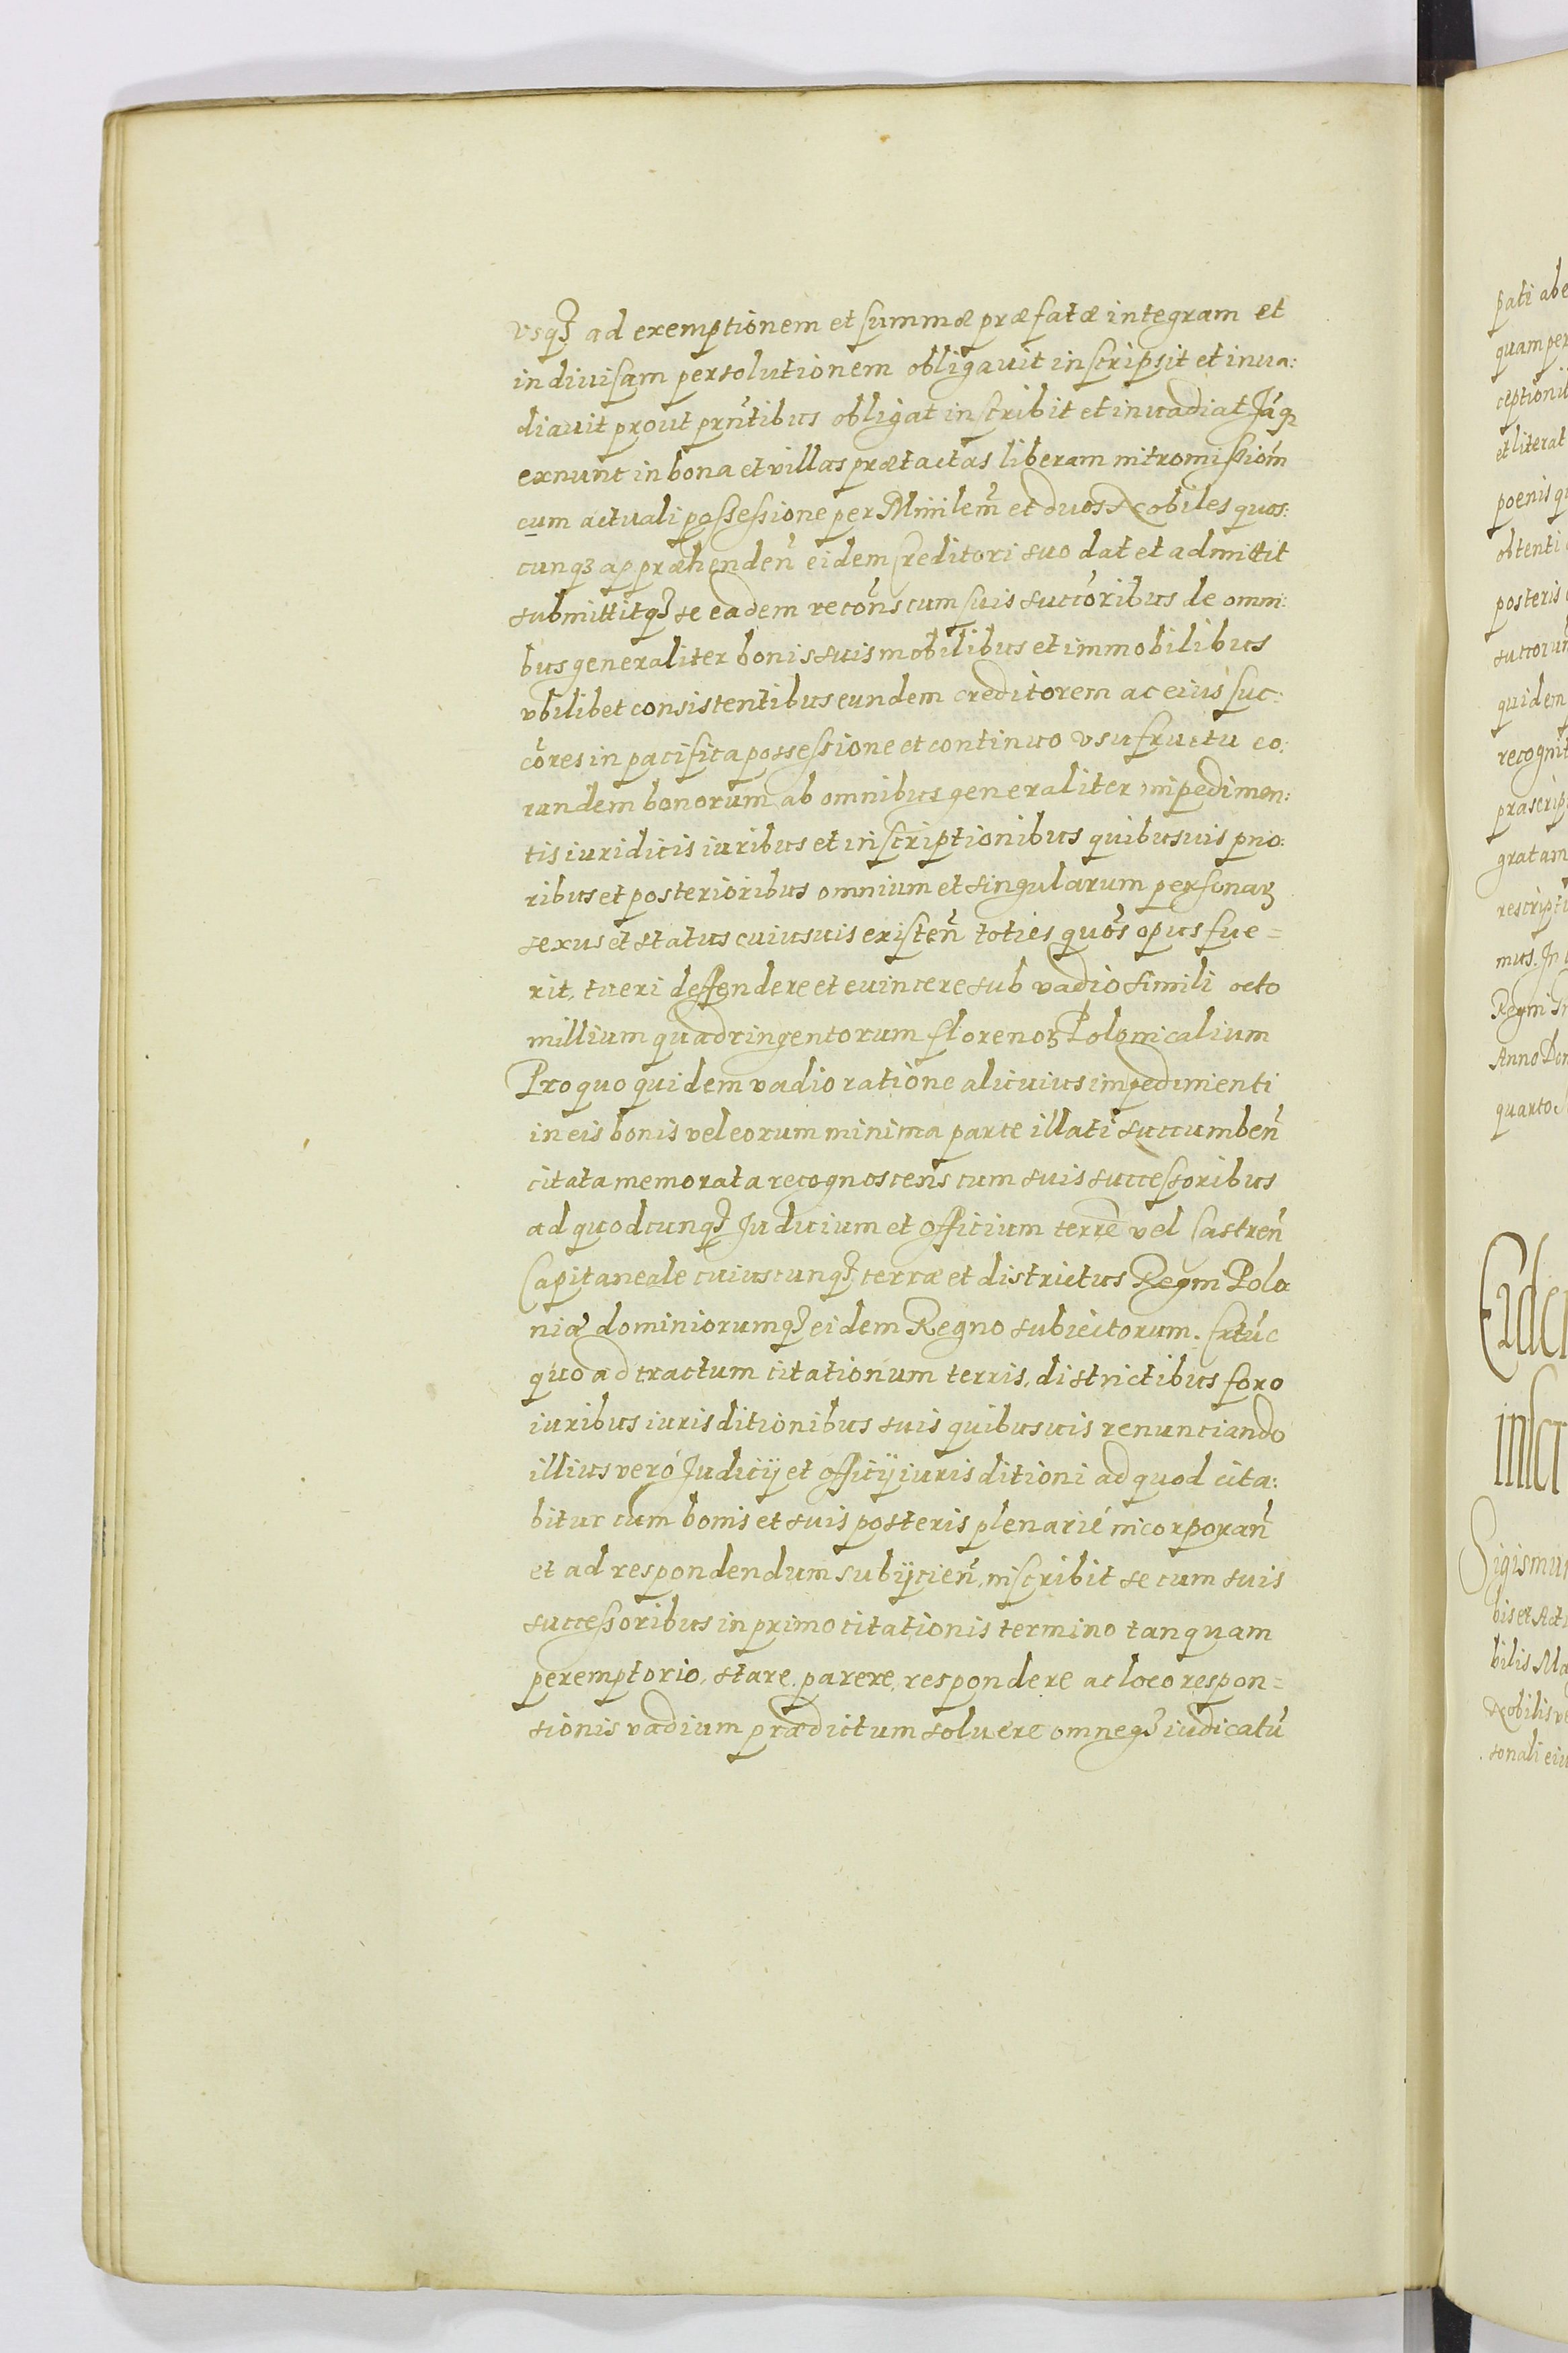 vsqꝫ ad exemptionem et summæ præfatæ integram et
indiuisam persolutionem obligauit inscripsit et inua:
diauit prout prñtibus obligat inscribit et inuadiat Jáqꝫ
exnunc in bona et villas prætactas liberam intromissiom̃
cum actuali possessione per Minilem̃ et duos Nobiles quos:
cunqꝫ appræhenden̄ eidem Creditori suo dat et admittit
submittitqꝫ se eadem recon̄s cum suis succōribus de omni:
bus generaliter bonis suis mobilibus et immobilibus
vbilibet consistentibus eundem creditorem ac eius suc:
cōres in pacifica possessione et continuo vsufructu eo:
rundem bonorum ab omnibus generaliter impedimen:
tis iuridicis iuribus et inscriptionibus quibusuis prio:
ribus et posterioribus omnium et singularum personaꝝ
sexus et status cuiusuis existen̄ toties quōs opus fue=
rit, tueri deffendere et euincere sub vadio simili octo
millium quadringentorum florenoꝝ Polonicalium
Pro quo quidem vadio ratione alicuius impedimenti
in eis bonis vel eorum minima parte illati succumben̄
citata memorata recognoscens cum suis successoribus
ad quodcunqꝫ Judicium et officium terrē vel Castren̄
Capitaneale cuiuscunqꝫ terræ et districtus Regni Polo
niæ dominiorumqꝫ eidem Regno subiectorum. Extūc
quo ad tractum citationum terris, districtibus foro
iuribus iurisditionibus suis quibusuis renunciando
illius veró Judicij et officij iurisditioni ad quod cita:
bitur cum bonis et suis posteris plenarié incorporan̄
et ad respondendum subijcien̄, inscribit se cum suis
successoribus in primo citationis termino tanquam
peremptorio, stare, parere, respondere ac loco respon=
sionis vadium prædictum soluere omneqꝫ iudicatū
pati abe
quam per
ceptionib
et literat
poenis qu
obtenti
posteris
succorum
quidem
recognit
præscrip
gratam
rescripti
mus. In
Regni
Anno Do
quarto
Eiden
inscr
Sigismun
bis et Act
bilis Ma
Nobilis ve
sonali eiu